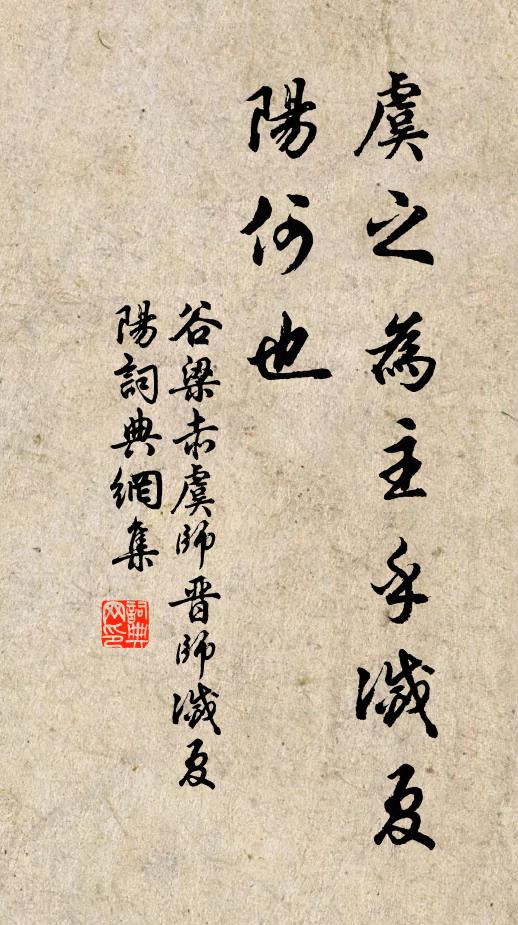 虞之為主乎滅夏
陽何也
谷梁赤虞師晋師滅夏
陽詞典網集
詞典网印